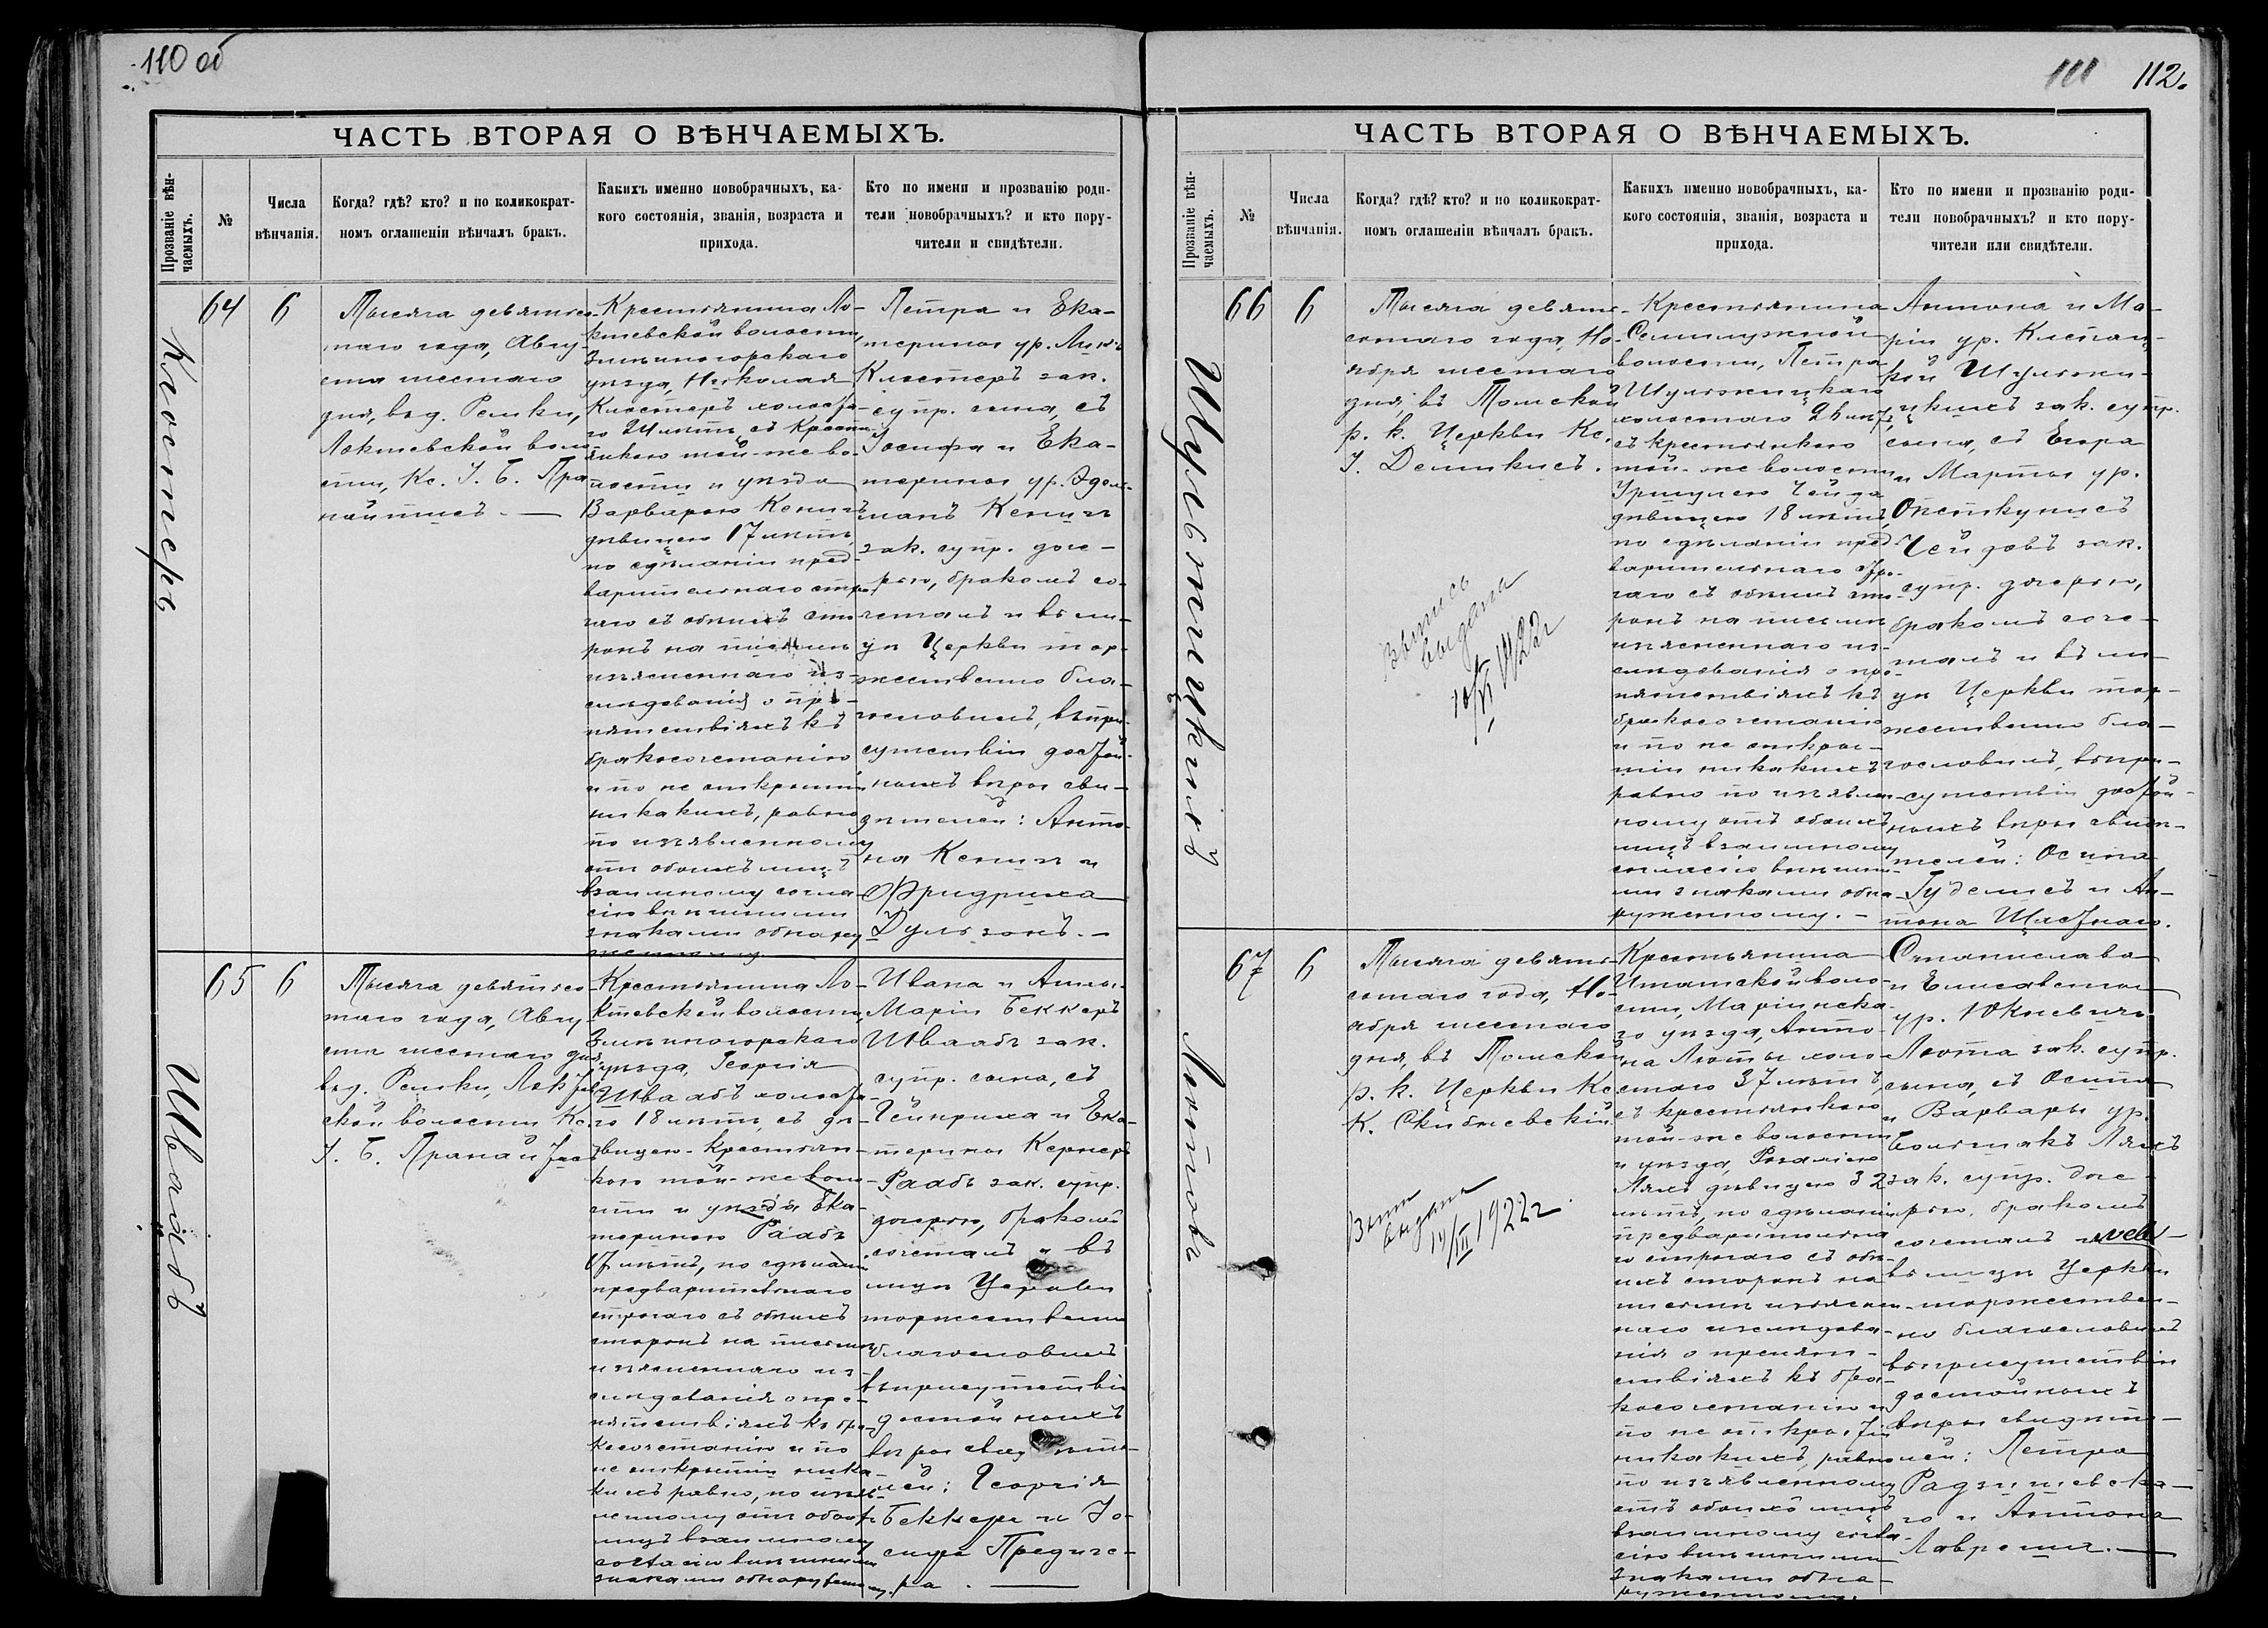 110 об
ЧАСТЬ ВТОРАЯ О ВѢНЧАЕМЫХЪ.
Прозваніе вѣн-
чаемыхъ.
№
Числа
вѣнчанія.
Когда? гдѣ? кто? и по коликократ-
номъ оглашеніи вѣнчалъ бракъ.
Какихъ именно новобрачныхъ, ка-
кого состоянія, званія, возраста и
прихода.
Кто по имени и прозванію роди-
тели новобрачныхъ? и кто пору-
чители и свидѣтели.
Клостеръ
64
6
Тысяча девятисо-
таго года, Авгу-
ста шестаго
дня, въ д.
Локтевской воло-
сти, Кс. І. Б. Пра-
найтисъ.
Крестьянина Ло-
ктевской волости,
Змѣиногорскаго
уѣзда, Николая
Клостеръ холоста-
го 24 лѣтъ съ кресть-
янкою той-же во-
лости и уѣзда
Варварою Кенигъ
дѣвицею 17 лѣтъ,
по сдѣланіи пред-
варительнаго стро-
гаго съ обѣихъ сто-
ронъ на письмѣ
изъясненнаго из-
слѣдованія о пре-
пятствіяхъ къ
бракосочетанію
и по не открытіи
никакихъ, равно
по изъявленному
отъ обоихъ лицъ
взаимному согла-
сію внѣшними
знаками обнару-
женному.
Петра и Ека-
терины ур.
Клостеръ зак.
супр. сына, съ
Іосифа и Ека-
терины ур.
Кенигъ
зак. супр. доче-
рью, бракомъ со-
четалъ и въ ли-
цѣ Церкви тор-
жественно бла-
гословилъ, въ при-
сутствіи достой-
ныхъ вѣры сви-
дѣтелей: Анто-
на Кенигъ и
Фридриха
Дульзонъ.
Швабъ
65
6
Тысяча девятисо-
таго года, Авгу-
ста шестаго дня,
въ д. Локтев-
ской волости Кс.
І. Б. Пранайтисъ
Крестьянина Ло-
ктевской волости,
Змѣиногорскаго
уѣзда, Георгія
Швабъ холоста-
го 18 лѣтъ, съ дѣ-
вицею-крестьян-
кою той-же воло-
сти и уѣзда Ека-
териною Раабъ
17 лѣтъ, по сдѣланіи
предварительнаго
строгаго съ обѣихъ
сторонъ на письмѣ
изъясненнаго из-
слѣдованія о пре-
пятствіяхъ къ бра-
косочетанію и по
не открытіи ника-
кихъ равно, по изъяв-
ленному отъ обоихъ
лицъ взаимному
согласію внѣшними
знаками обнаруженно-
му.
Ивана и Анны-
Маріи Беккеръ
Швабъ зак.
супр. сына, съ
Гейнриха и Ека-
терины Кернеръ
Раабъ зак. супр.
дочерью, бракомъ
сочеталъ и въ
лицѣ Церкви
торжественно
благословилъ
въ присутствіи
достойныхъ
вѣры свидѣте-
лей: Георгія
Беккера и Іо-
сифа Предиге-
ра.
111 112.
ЧАСТЬ ВТОРАЯ О ВѢНЧАЕМЫХЪ.
Прозваніе вѣн-
чаемыхъ.
№
Числа
вѣнчанія.
Когда? гдѣ? кто? и по коликократ-
номъ оглашеніи вѣнчалъ бракъ.
Какихъ именно новобрачныхъ, ка-
кого состоянія, званія, возраста и
прихода.
Кто по имени и прозванію роди-
тели новобрачныхъ? и кто пору-
чители или свидѣтели.
Шульжицкій
66
6
Тысяча девяти-
сотаго года, Но-
ября шестаго
дня, въ Томской
р. к. Церкви Кс.
І. Демикисъ.
выпись
выдана
10/VI 1922 г
Крестьянина
Семилужной
волости, Петра
Шульжицкаго
холостаго 26 лѣтъ,
съ крестьянкою
той-же волости
Уршулею Гейда
дѣвицею 18 лѣтъ,
по сдѣланіи пред-
варительнаго стро-
гаго съ обѣихъ сто-
ронъ на письмѣ
изъясненнаго из-
слѣдованія о пре-
пятствіяхъ къ
бракосочетанію
и по не откры-
тіи никакихъ
равно по изъявлен-
ному отъ обоихъ
лицъ взаимному
согласію внѣшни-
ми знаками обна-
руженному.
Антона и Ма-
ріи ур.
Шульжи-
цкихъ зак. супр.
сына, съ Егора
и Марты ур.
Гейдовъ зак.
супр. дочерью,
бракомъ соче-
талъ и въ ли-
цѣ Церкви тор-
жественно бла-
гословилъ, въ при-
сутствіи достой-
ныхъ вѣры свидѣ-
телей: Осипа
Гуделисъ и Ан-
тона Щастнаго.
Лютовъ
67
6
Тысяча девяти-
сотаго года, Но-
ября шестаго
дня, въ Томской
р. к. Церкви Кс
К. Скибневскій
Вып
выдана
14/III 1922 г.
Крестьянина
Итатской воло-
сти, Маріинска-
го уѣзда, Анто-
на Люты холо-
стаго 37 лѣтъ,
съ крестьянкою
той-же волости
и уѣзда, Розаліею
Ляхъ дѣвицею 32
лѣтъ, по сдѣланіи
предварительна-
го строгаго съ обѣ-
ихъ сторонъ на
письмѣ изъяснен-
наго изслѣдова-
нія о препят-
ствіяхъ къ бра-
косочетанію и
по не открытіи
никакихъ, равно
по изъявленному
отъ обоихъ лицъ
взаимному согла-
сію внѣшними
знаками обна-
руженному.
Станислава
и Елисаветы
ур. Юкневичъ
Люта зак. супр.
сына, съ Осипа
и Варвары ур.
Большакъ Ляхъ
зак. супр. доче-
рью, бракомъ
сочеталъ и
въ лицѣ Церкви
торжествен-
но благословилъ
въ присутствіи
достойныхъ
вѣры свидѣте-
лей: Петра
Радзишевска-
го и Антона
Лавренчи.